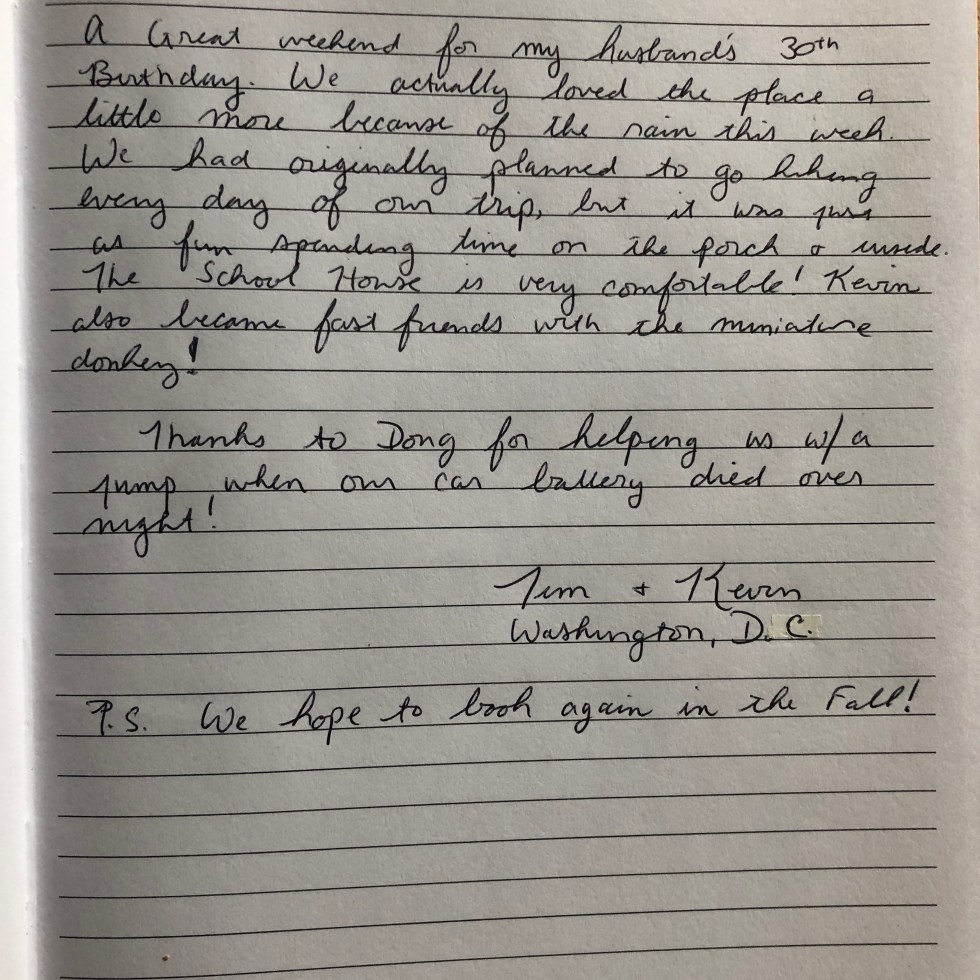 A Great weekend for my husband's 30th
Birthday. We actually loved the place a
little more because of the rain this week.
We had originally planned to go hiking
every day of our trip, but it was just
as fun spending time on the porch & inside.
The School House is very comfortable! Kevin
also became fast friends with the miniature
donkey!
Thanks to Dong for helping us w/ a
jump when our car battery died over
night!
Tim + Kevin
Washington, D.C.
P.S. We hope to book again in the Fall!